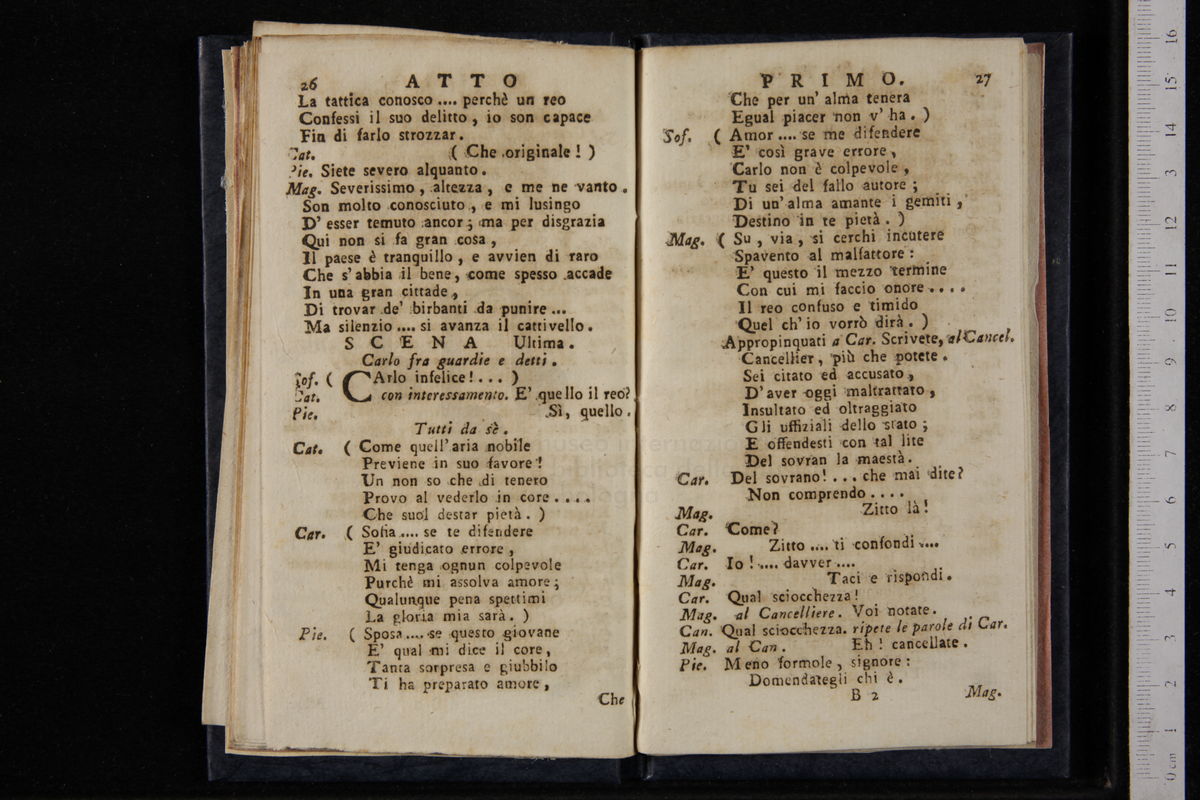 26 ATTO
La tattica conosco .... perchè un reo
Confessi il suo delitto, io son capace
Fin di farlo strozzar.
Cat. ( Che originale! )
Pie. Siete severo alquanto.
Mag. Severissimo, altezza, e me ne vanto.
Son molto conosciuto, e mi lusingo
D' esser temuto ancor; ma per disgrazia
Qui non si fa gran cosa,
Il paese è tranquillo, e avvien di raro
Che s' abbia il bene, come spesso accade
In una gran cittade,
Di trovar de' birbanti da punire ...
Ma silenzio .... si avanza il cattivello.
SCENA Ultima.
Carlo fra guardie e detti.
Sof. ( CArlo infelice! ... )
Cat. con interessamento. E' quello il reo?
Pie. Sì, quello.
Tutti da sè.
Cat. ( Come quell' aria nobile
Previene in suo favore!
Un non so che di tenero
Provo al vederlo in core ....
Che suol destar pietà. )
Car. ( Sofia .... se te difendere
E' giudicato errore,
Mi tenga ognun colpevole
Purchè mi assolva amore;
Qualunque pena spettimi
La gloria mia sarà. )
Pie. ( Sposa .... se questo giovane
E' qual mi dice il core,
Tanta sorpresa e giubbilo
Ti ha preparato amore,
Che
PRIMO. 27
Che per un' alma tenera
Egual piacer non v' ha. )
Sof. ( Amor .... se me difendere
E' così grave errore,
Carlo non è colpevole,
Tu sei del fallo autore;
Di un' alma amante i gemiti,
Destino in te pietà. )
Mag. ( Su, via, si cerchi incutere
Spavento al malfattore:
E' questo il mezzo termine
Con cui mi faccio onore ....
Il reo confuso e timido
Quel ch' io vorrò dirà. )
Appropinquati a Car. Scrivete, al Cancel.
Cancellier, più che potete.
Sei citato ed accusato,
D' aver oggi maltrattato,
Insultato ed oltraggiato
Gli uffiziali dello stato;
E offendesti con tal lite
Del sovran la maestà.
Car. Del sovrano! ... che mai dite?
Non comprendo ....
Mag. Zitto là!
Car. Come?
Mag. Zitto .... ti confondi ....
Car. Io! .... davver ....
Mag. Taci e rispondi.
Car. Qual sciocchezza!
Mag. al Cancelliere. Voi notate.
Can. Qual sciocchezza. ripete le parole di Car.
Mag. al Can. Eh! cancellate.
Pie. Meno formole, signore:
Domendategli chi è.
B 2 Mag.